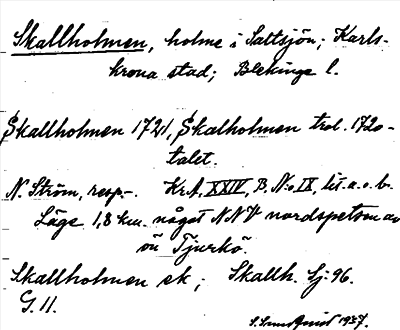 Skallholmen, holme i Saltsjön; Karls-
krona stad; Blekinge l.
Skallholmen 1721, Skalholmen trol. 1720-
talet.
N. Ström, resp. Kr.A. XXIV, B. N:o IX, lit. a. o. b.
Läge 1,8 km. något NNV nordspetsen av
ön Tjurkö.
Skallholmen ek; Skallh. Sj: 96.
G. 11.
1937.